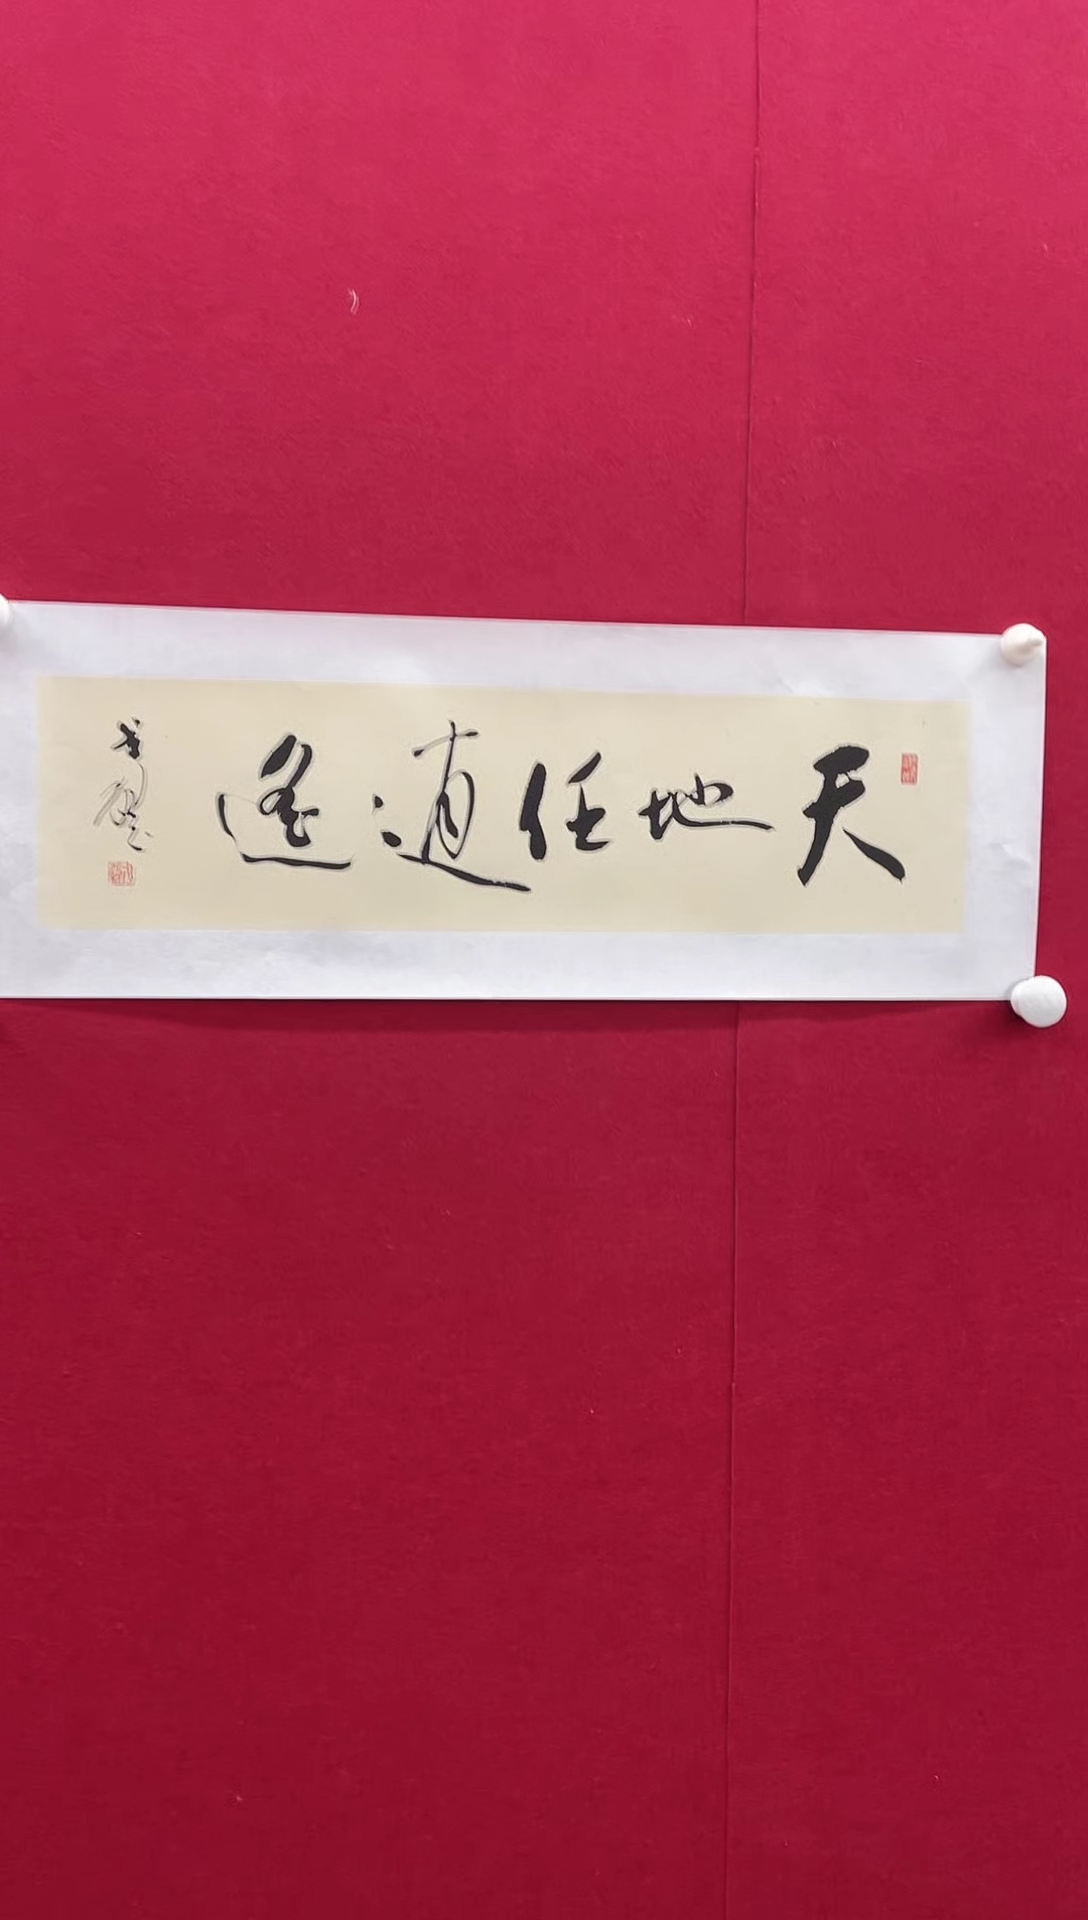 天地任逍遙